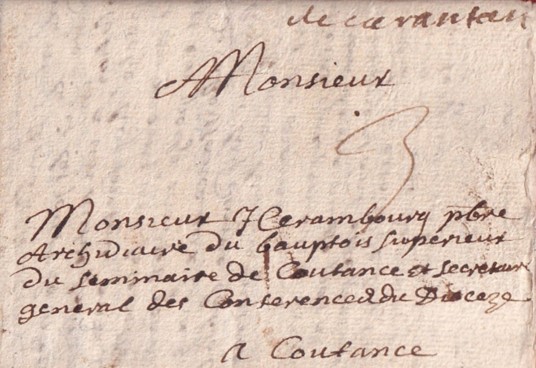 de carantan
A Monsieur
3
Monsieur Herambourg pbre
Archidiacre du bauptois superieur
du seminaire de Coutance et secretaire
general des Conferences du Dioceze
a Coutance